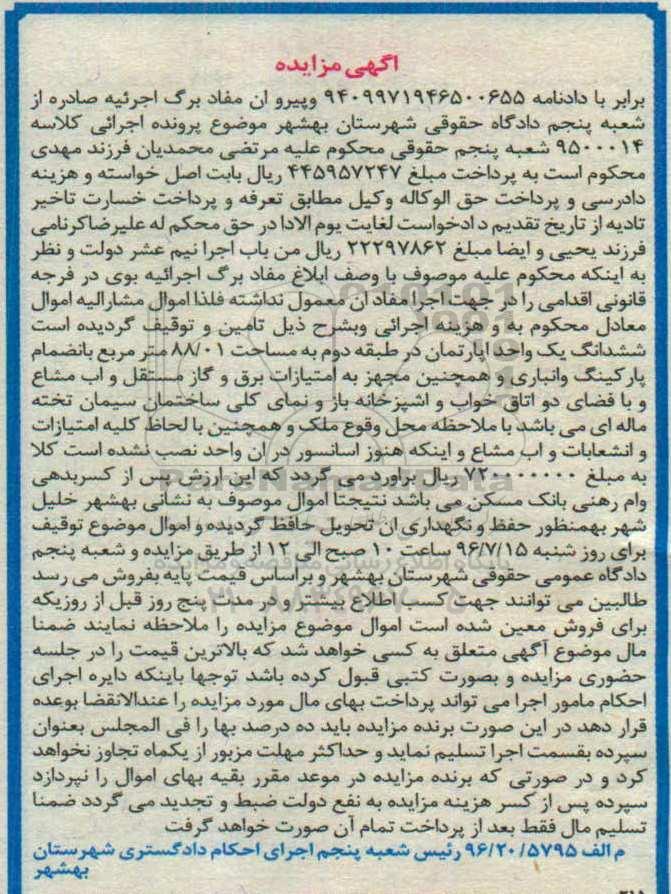 آگهی مزایده
برابر با دادنامه ۹۴۰۹۹۷۱۹۴۶۵۰۰۶۵۵ وپیرو ان مفاد برگ اجرئیه صادره از
شعبه پنجم دادگاه حقوقی شهرستان بهشهر موضوع پرونده اجرائی کلاسه
۹۵۰۰۰۱۴ شعبه پنجم حقوقی محکوم علیه مرتضی محمدیان فرزند مهدی
محکوم است به پرداخت مبلغ ۴۴۵۹۵۷۲۴۷ ریال بابت اصل خواسته و هزینه
دادرسی و پرداخت حق الوکاله وکیل مطابق تعرفه و پرداخت خسارت تاخیر
تادیه از تاریخ تقدیم دادخواست لغایت یوم الادا در حق محکم له علیرضاکرنامی
فرزند یحیی و ایضا مبلغ ۲۲۲۹۷۸۶۲ ریال من باب اجرا نیم عشر دولت و نظر
به اینکه محکوم علیه موصوف با وصف ابلاغ مفاد برگ اجرائیه بوی در فرجه
قانونی اقدامی را در جهت اجرا مفاد ان معمول نداشته فلذا اموال مشارالیه اموال
معادل محکوم به و هزینه اجرائی وبشرح ذیل تامین و توقیف گردیده است
ششدانگ یک واحد اپارتمان در طبقه دوم به مساحت ۸۸/۰۱ متر مربع بانضمام
پارکینگ وانباری و همچنین مجهز به امتیازات برق و گاز مستقل و اب مشاع
و با فضای دو اتاق خواب و اشپزخانه باز و نمای کلی ساختمان سیمان تخته
ماله ای می باشد با ملاحظه محل وقوع ملک و همچنین با لحاظ کلیه امتیازات
و انشعابات و اب مشاع و اینکه هنوز اسانسور در ان واحد نصب نشده است کلا
به مبلغ ۷۲۰۰۰۰۰۰۰ ریال براورد می گردد که این ارزش پس از کسربدهی
وام رهنی بانک مسکن می باشد نتیجتا اموال موصوف به نشانی بهشهر خلیل
شهر بهمنظور حفظ و نگهداری ان تحویل حافظ گردیده و اموال موضوع توقیف
برای روز شنبه ۹۶/۷/۱۵ ساعت ۱۰ صبح الی ۱۲ از طریق مزایده و شعبه پنجم
دادگاه عمومی حقوقی شهرستان بهشهر و براساس قیمت پایه بفروش می رسد
طالبین می توانند جهت کسب اطلاع بیشتر و در مدت پنج روز قبل از روزیکه
برای فروش معین شده است اموال موضوع مزایده را ملاحظه نمایند ضمنا
مال موضوع آگهی متعلق به کسی خواهد شد که بالاترین قیمت را در جلسه
حضوری مزایده و بصورت کتبی قبول کرده باشد توجها باینکه دایره اجرای
احکام مامور اجرا می تواند پرداخت بهای مال مورد مزایده را عندالانقضا بوعده
قرار دهد در این صورت برنده مزایده باید ده درصد بها را فی المجلس بعنوان
سپرده بقسمت اجرا تسلیم نماید و حداکثر مهلت مزبور از یکماه تجاوز نخواهد
کرد و در صورتی که برنده مزایده در موعد مقرر بقیه بهای اموال را نپردازد
سپرده پس از کسر هزینه مزایده به نفع دولت ضبط و تجدید می گردد ضمنا
تسلیم مال فقط بعد از پرداخت تمام آن صورت خواهد گرفت
م الف ۹۶/۲۰/۵۷۹۵ رئیس شعبه پنجم اجرای احکام دادگستری شهرستان
بهشهر